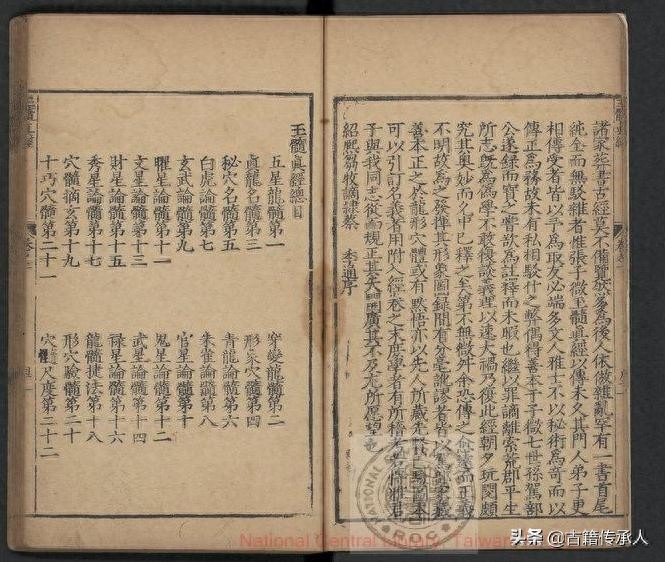 諸家葬書古經莫不備覽然多為後人依倣雜亂罕有一書首尾
純全而無駁雜者惟張子微玉髓真經以傳未久其門人弟子更
相傳受者皆以子為取友必端多文人雅士不以秘術為奇而以
傳正為務故未有私相駁什之弊偶得善本于子微七世孫駕部
公遂録而寶之嘗欲為註釋而未暇也繼以罪謫離索荒郡平生
所志既為偽學不敢復談義理以速大禍乃復此經朝夕玩閱頗
究其奧妙而文中已釋之至第不無微舛余恐傳之愈遠而正義
不明故為之發揮其形象圖録間有分毫訛誤者皆以
善本正之於龍形穴體或有默悟亦以先人所藏先賢圖本
可以引訂名義者用附入經卷之末庶學者有所稽考博雅君
子與我同志從而規正其失四廣其不及尤所願望也
紹熙蒭牧謫隷蔡 季通序
玉髓真經總目
五星龍髓第一 穿變龍髓第二
真龍名髓第三 形朶穴髓第四
秘穴名髓第五 青龍論髓第六
白虎論髓第七 朱雀論髓第八
玄武論髓第九 官星論髓第十
曜星論髓第十一 鬼星論髓第十二
文星論髓第十三 武星論髓第十四
財星論髓第十五 禄星論髓第十六
秀星論髓第十七 龍髓捷法第十八
穴髓摘玄第十九 形穴驗髓第二十
十巧穴髓第二十一 穴髓尺度第二十二
National Central Library, Taiwan
头条 @古籍传承人